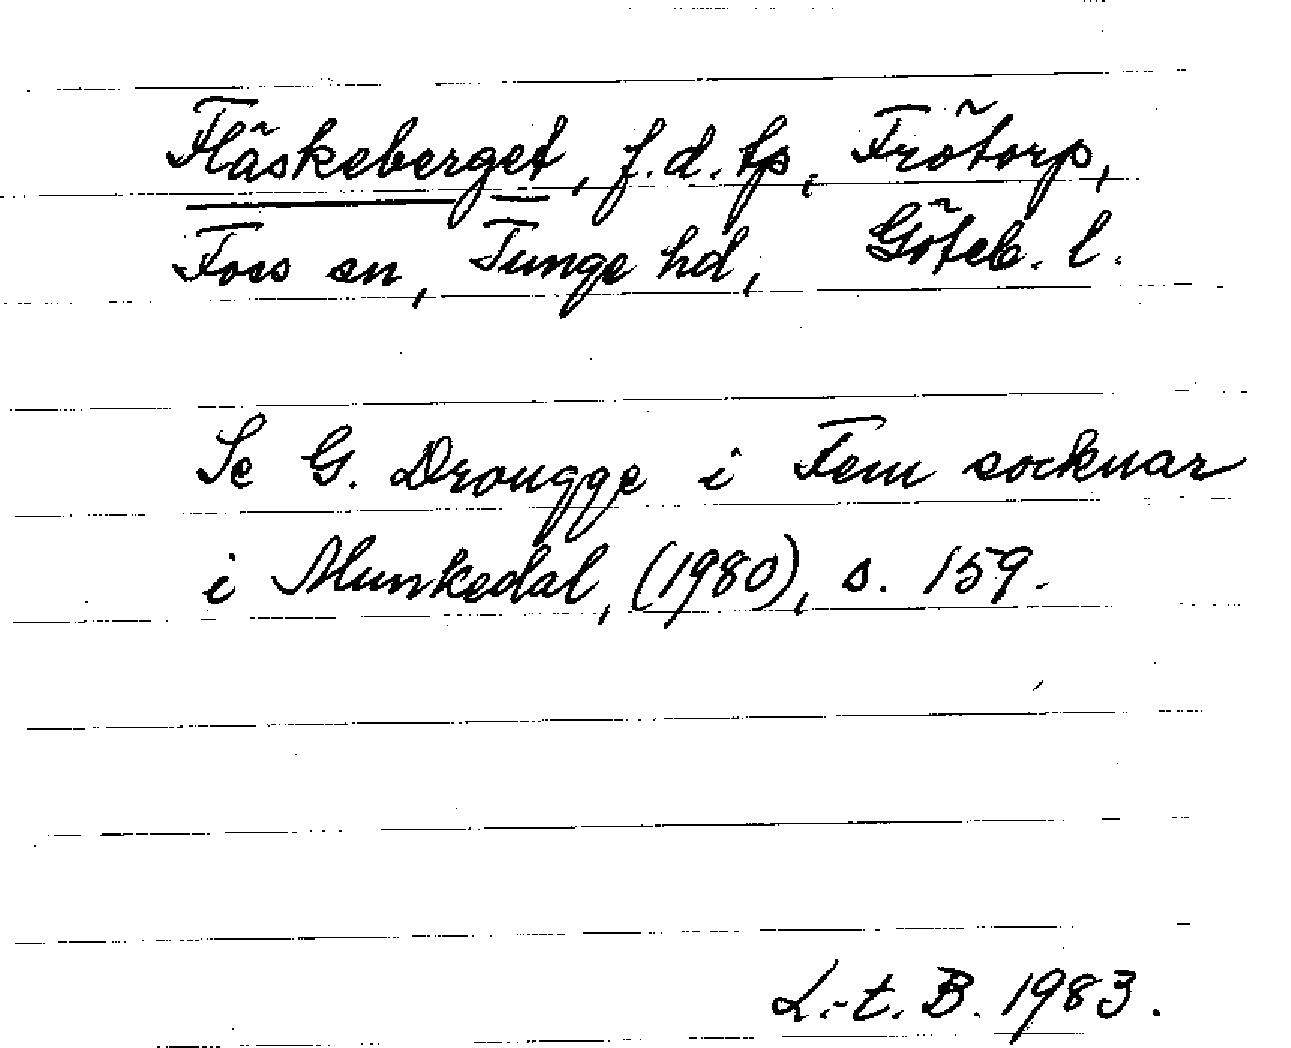 Fläskeberget, f.d. tp, Frötorp,
Foss sn, Tunge hd, Göteb. l.
Se G. Drougge i Fem socknar
i Munkedal, (1980), s. 159.
L.-t. B. 1983.